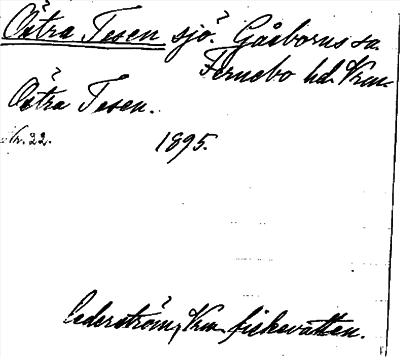 Östra Tesen sjö. Gåsborns sn
Fernebo hd. Vrm.
Östra Tesen.
Nr. 22. 1895.
Cederström, Vrm fiskevatten.